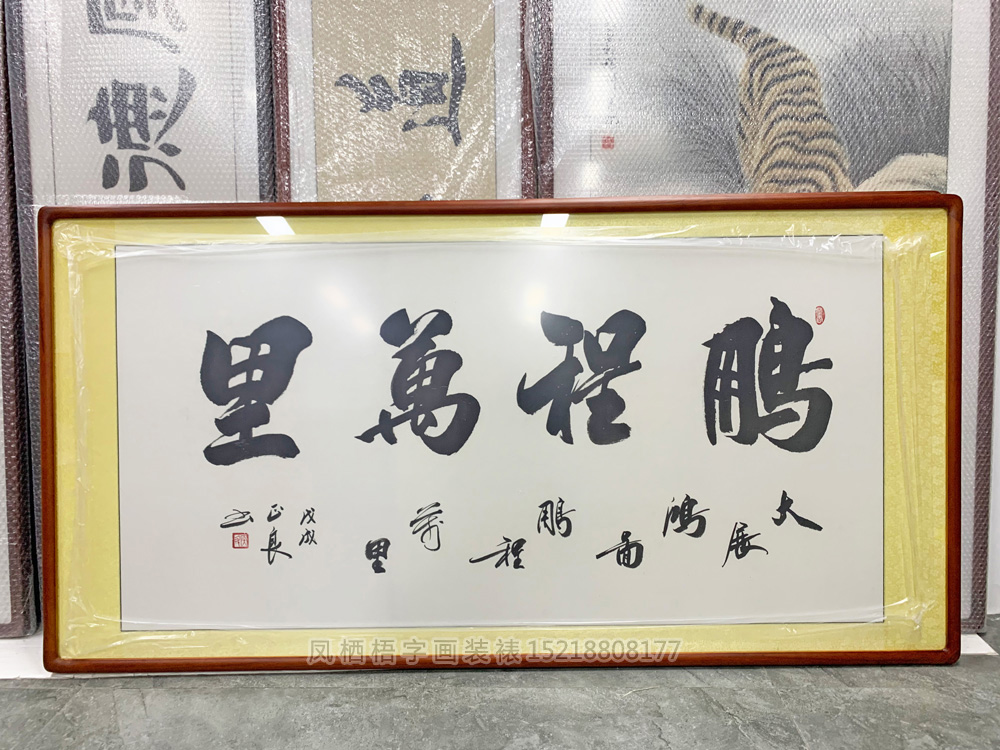 鵬程萬里
大展鴻圖鵬程萬里
戊戌
正良
书
凤栖梧字画装裱15218808177